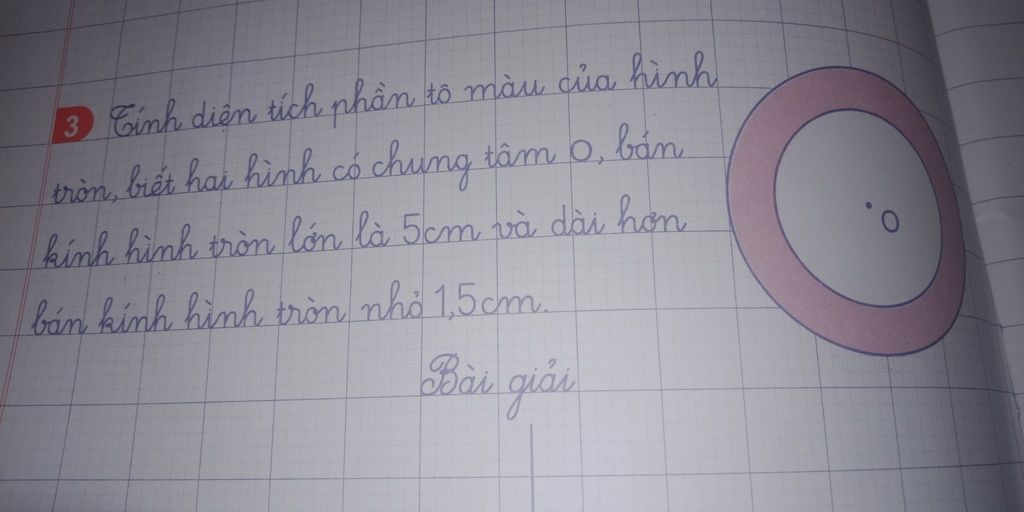 3 Tính diện tích phần tô màu của hình
tròn, biết hai hình có chung tâm O, bán
kính hình tròn lớn là 5cm và dài hơn
bán kính hình tròn nhỏ 1,5cm.
O
Bài giải